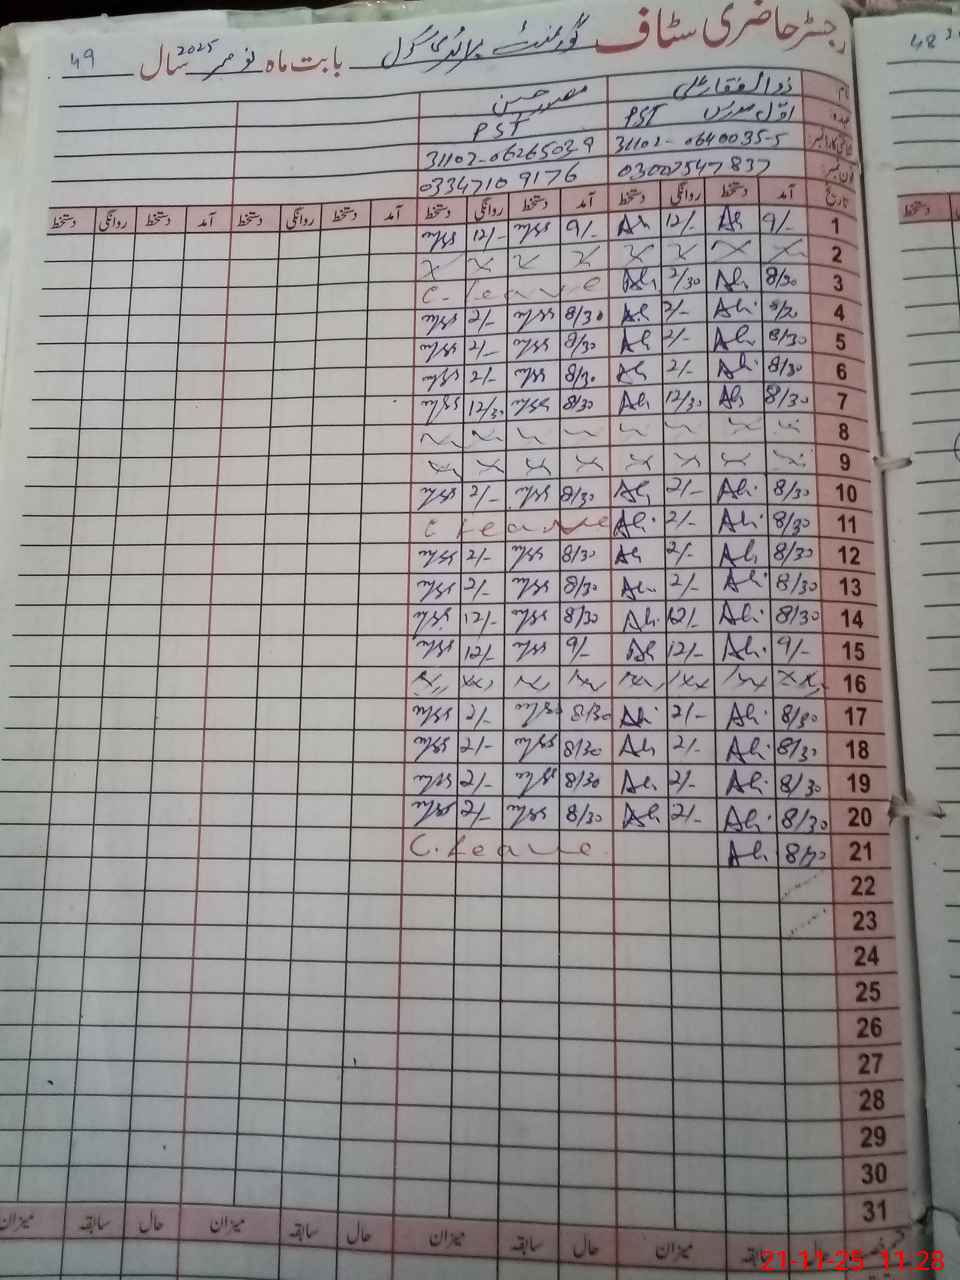 رجسٹر حاضری سٹاف گورنمنٹ پرائمری سکول بابت ماہ نومبر سال 2025 49
48
نام ذوالفقار علی
عہدہ اول مدرس PST PST
شناختی کارڈ نمبر 31102-0640035-5 31102-0626503-9
فون نمبر 03007547837 03347109176
تاریخ آمد دستخط روانگی دستخط آمد دستخط روانگی دستخط آمد دستخط روانگی دستخط آمد دستخط روانگی دستخط
دستخط
1 9/- Ali 12/- Ali 9/- 12/-
2 x x x x x x x x
3 8/30 Ali 2/30 Ali C. Leave
4 Ali 2/- Ali 8/30 2/-
5 8/30 Ali 2/- Ali 8/30 2/-
6 8/30 Ali 2/- Ali 8/30 2/-
7 8/30 Ali 12/30 Ali 8/30 12/30
8
9 x x x x x x x x
10 8/30 Ali 2/- Ali 8/30 2/-
11 8/30 Ali 2/- Ali C Leave
12 8/30 Ali 2/- Ali 8/30 2/-
13 8/30 Ali 2/- Ali 8/30 2/-
14 8/30 Ali 12/- Ali 8/30 12/-
15 9/- Ali 12/- Ali 9/- 12/-
16
17 8/30 Ali 2/- Ali 8/30 2/-
18 8/30 Ali 2/- Ali 8/30 2/-
19 8/30 Ali 2/- Ali 8/30 2/-
20 8/30 Ali 2/- Ali 8/30 2/-
21 8/30 Ali C. Leave
22
23
24
25
26
27
28
29
30
31
حال سابقہ میزان حال سابقہ میزان حال سابقہ میزان حال سابقہ میزان
21-11-25 11:28